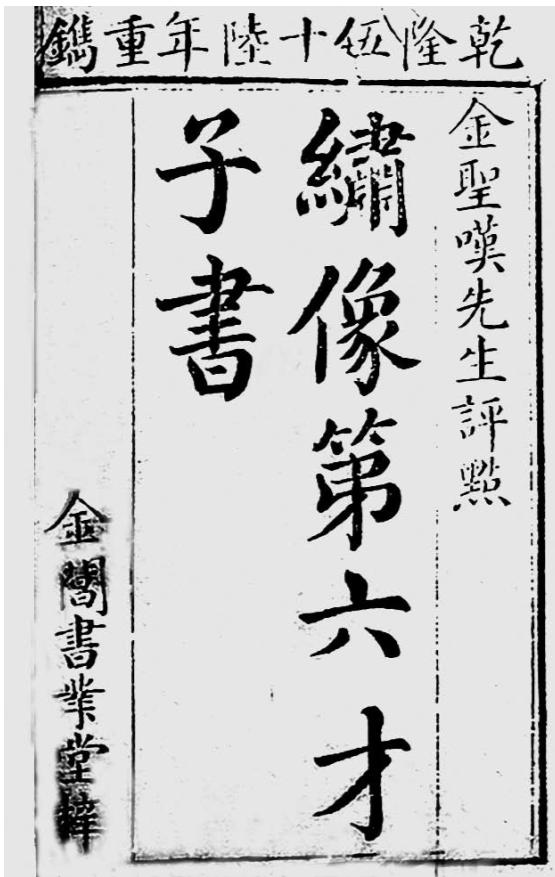 乾隆伍十陸年重鐫
金聖嘆先生評點
繡像第六才
子書
金閶書業堂梓